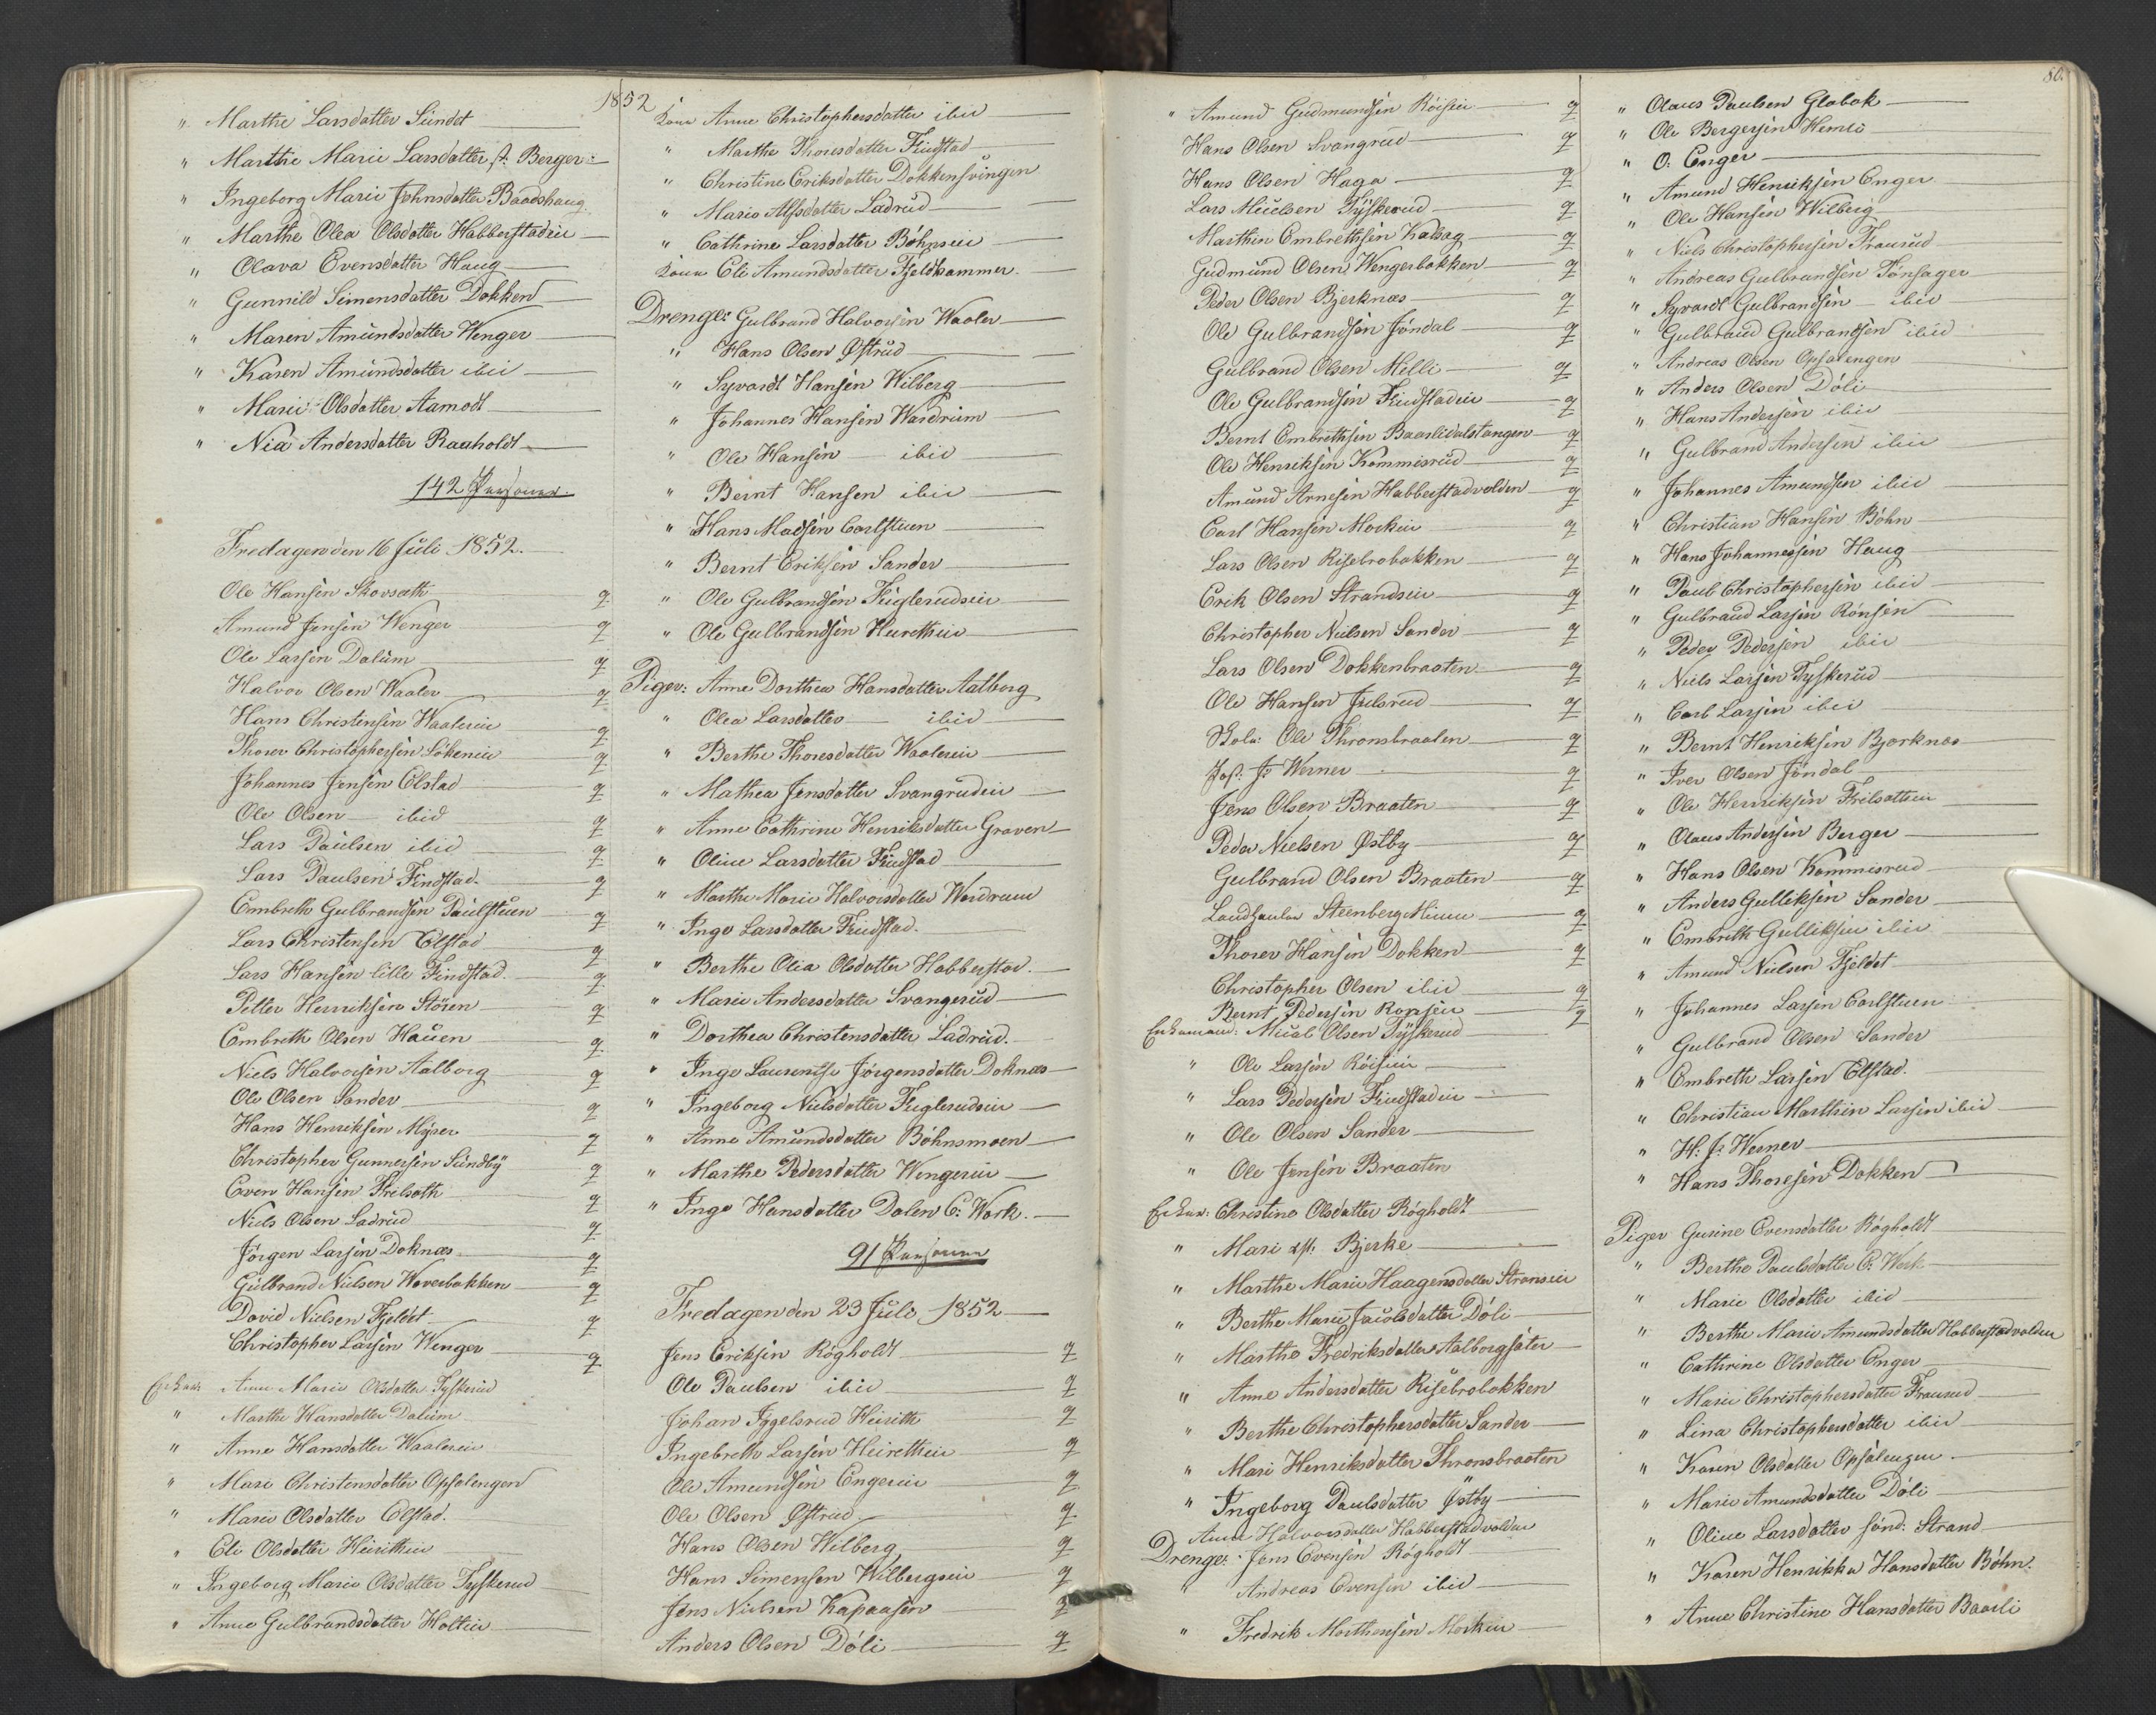 1852
" Marthe Larsdatter Sundet
" Marthe Marie Larsdatter Berger
" Ingeborg Marie Johnsdatter Baadshaug
" Marthe Olea Olsdatter Habberstadeie
" Olava Evensdatter Haug
" Gunnild Simensdatter Dokken
" Maren Amundsdatter Wenger
" Karen Amundsdatter ibid
" Marie Olsdatter Aamodt
" Nia Andersdatter Raaholdt
142 Personer.
Fredagen den 16 Juli 1852.
Ole Hansen Skovsæth q
Amund Jensen Wenger q
Ole Larsen Dalum q
Halvor Olsen Waaler q
Hans Christensen Waalereie q
Thorer Christophersen q
Johannes Jensen Olstad q
Ole Olsen ibid q
Lars Paulsen ibid q
Lars Paulsen Findstad q
Embreth Gulbrandsen Paulstuen q
Lars Christensen Elstad q
Lars Hansen lille Findstad q
Petter Henriksen Stören q
Embreth Olsen Hauen q
Niels Halvorsen Aalborg q
Ole Olsen Sander q
Hans Henriksen Myrer q
Christopher Gunnersen Sundby q
Even Hansen Frilsæth q
Niels Olsen Ladrud q
Jörgen Larsen Doknæs q
Gulbrand Nielsen Woverbakken q
David Nielsen Fjeldet q
Christopher Larsen Wenger q
Anne Marie Olsdatter Tyskerud
" Marthe Hansdatter Dalum
" Anne Hansdatter Waalereie
" Mari Christensdatter Opsalengen
" Marie Olsdatter Elstad.
" Eli Olsdatter Heiretheie
" Ingeborg Marie Olsdatter Tyskerud
" Anne Gulbrandsdatter Holteie
Kone Anne Christophersdatter ibid
" Marthe Thoresdatter Findstad
" Christine Eriksdatter Dokkensvingen
" Marie Alfsdatter Ladrud
" Cathrine Larsdatter Böhnseie
Kone Eli Amundsdatter Fjeldhammer
Drenge: Gulbrand Halvorsen Waaler
" Hans Olsen Østrud
" Syvardt Hansen Wilberg
" Johannes Hansen Wardrum
" Ole Hansen ibid
" Bernt Hansen ibid
" Hans Madsen Carlstuen
" Bernt Eriksen Sander
" Ole Gulbrandsen Fuglerudseie
" Ole Gulbrandsen Huretheie
Piger: Anne Dorthea Hansdatter Aalborg
" Olea Larsdatter ibid
" Berthe Thoresdatter Waalereie
" Mathea Jensdatter Svangrudeie
" Anne Cathrine Henriksdatter Graven
" Oline Larsdatter Findstad
" Marthe Marie Halvorsdatter Wardrum
" Inge Larsdatter Findstad.
" Berthe Olia Olsdatter Habberstad.
" Marie Andersdatter Svangerud
" Dorthea Christensdatter Ladrud.
" Inge Laurentse Jörgensdatter Doknæs
" Ingeborg Nielsdatter Fuglerudseie
" Anne Amundsdatter Böhnsmoen
" Marthe Pedersdatter Wengereie
" Inge Hansdatter Dalen E: Werk.
91 Personer
Fredagen den 23 Juli 1852
Jens Eriksen Rögholdt q
Ole Paulsen ibid q
Johan Iggelsrud Heireth q
Ingebreth Larsen Heiretheie q
Ole Amundsen Engereie q
Ole Olsen Østrud q
Hans Olsen Wilberg q
Hans Simensen Wilbergseie q
Jens Nielsen Kapaasen q
Anders Olsen Döli q
" Amund Gudmundsen Röiseie q
Hans Olsen Svangrud q
Hans Olsen Haga q
Lars Nielsen Tyskerud q
Marthin Embrethsen Kalsag q
Gudmund Olsen Wengerbakken q
Peder Olsen Bjerknæs q
Ole Gulbrandsen Jöndal q
Gulbrand Olsen Melli q
Ole Gulbrandsen Findstadeie q
Bernt Embrethsen Baarlidalstangen q
Ole Henriksen Kommisrud q
Amund Arnesen Habberstadvolden q
Carl Hansen Morkeie q
Lars Olsen Risebrobakken q
Erik Olsen Strandseie q
Christopher Nielsen Sander q
Lars Olsen Dokkenbraaten q
Ole Hansen Julsrud q
Skol: Ole Thronsbraaten q
Jos: Js Werner q
Jens Olsen Braaten q
Peder Nielsen Østby q
Gulbrand Olsen Braaten q
Landhandler Steenberg Minne q
Thorer Hansen Dokken q
Christopher Olsen ibid q
Bernt Pedersen Ronseie q
Enkemand: Olsen Tyskerud
" Ole Larsen Röiseie
" Lars Pedersen Findstadeie
" Ole Olsen Sander
" Ole Jensen Braaten
Enker: Christine Olsdatter Rögholdt
" Mari Bjerke
" Marthe Marie Haagensdatter Stranseie
" Berthe Marie Jacobsdatter Döli
" Marthe Fredriksdatter Aalborgsæter
" Anne Andersdatter Risebrobakken
" Berthe Christophersdatter Sander
" Mari Henriksdatter Thronsbraaten
" Ingeborg Paulsdatter Östby
Anne Halvorsdatter Habberstadvolden
Drenge: Jens Evensen Rögholdt
" Andreas Evensen ibid
" Fredrik Marthensen Morkeie
80.
" Olaus Paulsen Globak
" Ole Bergersen Hemli
" O: Enger
" Amund Henriksen Enger
" Ole Hansen Wilberg
" Niels Christophersen Fraurud
" Andreas Gulbrandsen Tönsager
" Syvardt Gulbrandsen ibid
" Gulbrand Gulbrandsen ibid
" Andreas Olsen Opsalengen
" Anders Olsen Döli
" Hans Andersen ibid
" Gulbrand Andersen ibid
" Johannes Amundsen ibid
" Christian Hansen Böhn
" Hans Johannessen Haug
" Paul Christophersen ibid
" Gulbrand Larsen Rönsen
" Peder Pedersen ibid
" Niels Larsen Tyskerud
" Carl Larsen ibid
" Bernt Henriksen Bjerknæs
" Iver Olsen Jöndal
" Ole Henriksen Frilsætheie
" Olaus Andersen Berger
" Hans Olsen Kommisrud
" Anders Gulliksen Sander
" Embreth Gulliksen ibid
" Amund Nielsen Fjeldet
" Johannes Larsen Carlstuen
" Gulbrand Olsen Sander
" Embreth Larsen Elstad.
" Christian Marthin Larsen ibid
" H: J: Werner
" Hans Thoresen Dokken
Piger Gusine Evensdatter Rögholdt
" Berthe Paulsdatter E: Werk
" Marie Olsdatter ibid
" Berthe Marie Amundsdatter Habberstadvolden
" Cathrine Olsdatter Enger
" Marie Christophersdatter Fraurud
" Lina Christophersdatter ibid
" Karen Olsdatter Opsalengen
" Marie Amundsdatter Döli
" Oline Larsdatter sönd: Strand
" Karen Henrikka Hansdatter Böhn.
" Anne Christine Hansdatter Baarli